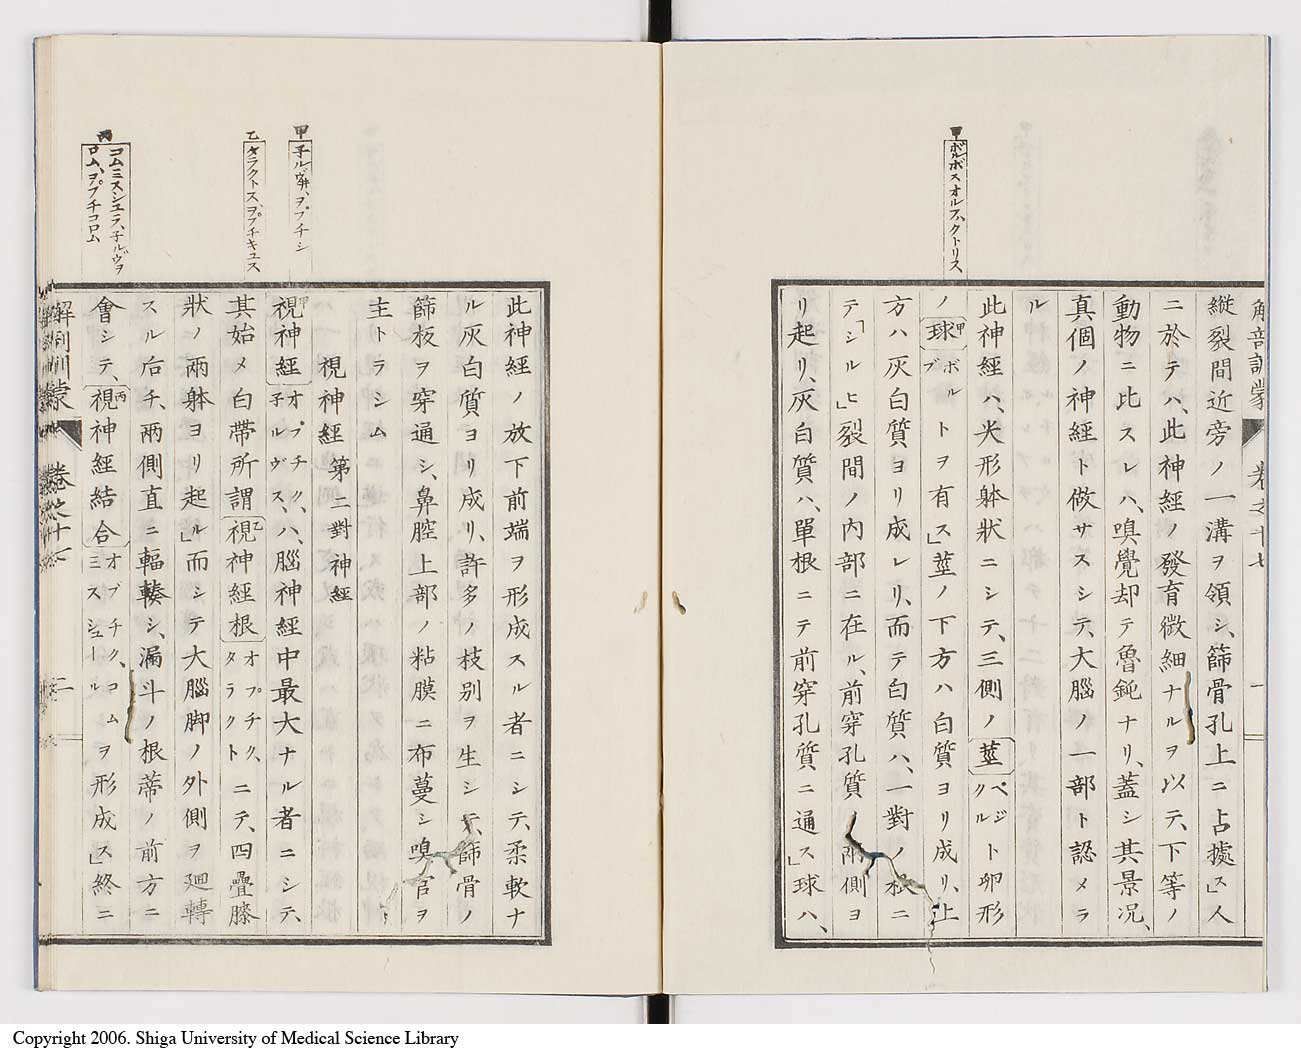 解剖訓蒙 卷之十七 一
甲
ボルボスオルファクトリス
縱裂間近旁ノ一溝ヲ領シ、篩骨孔上ニ占據ス」人
ニ於テハ、此神經ノ發育微細ナルヲ以テ、下等ノ
動物ニ比スレハ、嗅覺却テ魯鈍ナリ、蓋シ其景况、
真個ノ神經ト做サスシテ、大腦ノ一部ト認メラ
ル
此神經ハ、尖形躰狀ニシテ、三側ノ莖ペジクルト卵形
ノ球甲ボルブトヲ有ス」莖ノ下方ハ白質ヨリ成リ、上
方ハ灰白質ヨリ成レリ、而テ白質ハ、一對ノ根ニ
テ「シルヒ」裂間ノ内部ニ在ル、前穿孔質兩側ヨ
リ起リ、灰白質ハ、單根ニテ前穿孔質ニ通ス」球ハ、
甲
子ルヴ井、ヲプチシ
乙
タラクトス、ヲプチキュス
丙
コムミスシュラ、子ルヴヲ
ロム、ヲプチコロム
此神經ノ放下前端ヲ形成スル者ニシテ、柔軟ナ
ル灰白質ヨリ成リ、許多ノ枝别ヲ生シテ、篩骨ノ
篩板ヲ穿通シ、鼻腔上部ノ粘膜ニ布蔓シ嗅官ヲ
主トラシム
視神經 第二對神經
視神經甲オプチク、子ルヴスハ、腦神經中最大ナル者ニシテ、
其始メ白帶所謂視神經根乙オプチク、タラクトニテ、四疊膝
狀ノ兩躰ヨリ起ル」而シテ大腦脚ノ外側ヲ廻轉
スル后チ、兩側直ニ輻輳シ、漏斗ノ根蒂ノ前方ニ
會シテ、視神經結合丙オブチク、コムミスシュールヲ形成ス」終ニ
解剖訓蒙 卷之十七 二
Copyright 2006. Shiga University of Medical Science Library